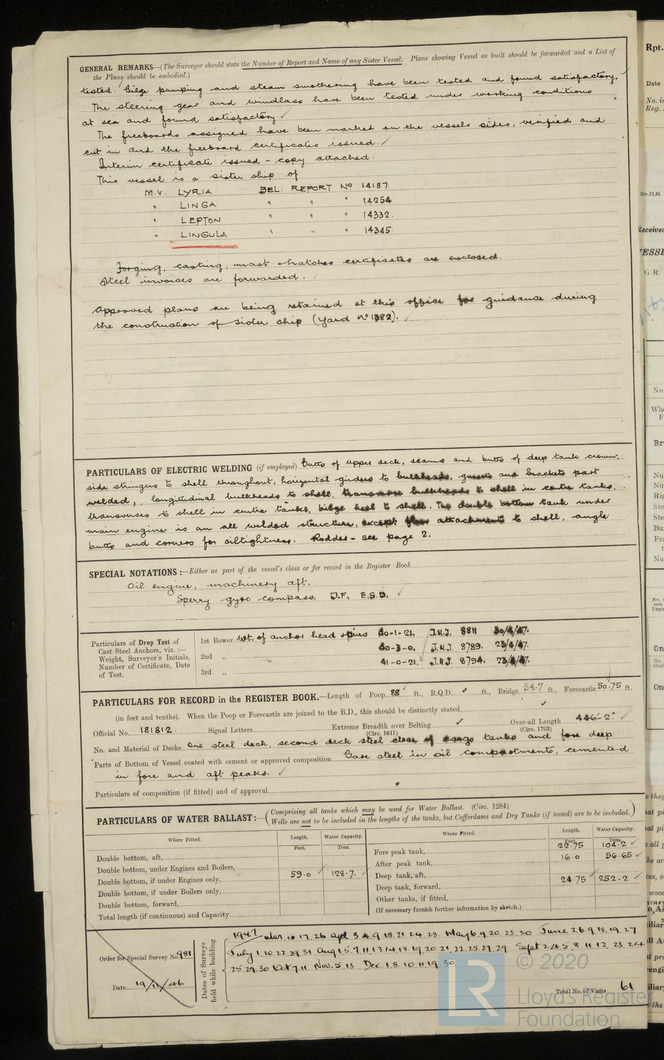 GENERAL REMARKS—(The Surveyor should state the Number of Report and Name of any Sister Vessel; Plans showing Vessel as built should be forwarded and a List of
the Plans should be embodied.)
tested. Bilge pumping and steam smothering have been tested and found satisfactory.
The steering gear and windlass have been tested under working conditions
at sea and found satisfactory.
The freeboards assigned have been marked on the vessels sides, verified and
cut in and the freeboard certificates issued.
Interim certificate issued - copy attached.
This vessel is a sister ship of
M.V. LYRIA BEL. REPORT No 14187.
" LINGA " " " 14254
" LEPTON " " " 14332.
" LINGULA " " " 14345.
Forging, casting, mast & hatches certificates are enclosed.
Steel invoices are forwarded.
Approved plans are being retained at this office for guidance during
the construction of sister ship (Yard No 1382).
PARTICULARS OF ELECTRIC WELDING (if employed) Butts of upper deck, seams and butts of deep tank crown
side stringers to shell throughout, horizontal girders to bulkheads, gussets and brackets part
welded, longitudinal bulkheads to shell, transverse bulkheads to shell in centre tanks,
transverses to shell in centre tanks, bilge keel to shell. The double bottom tank under
main engine is an all welded structure, except attachment to shell, angle
butts and corners for oiltightness. Rudder - see page 2.
SPECIAL NOTATIONS:—Either as part of the vessel's class or for record in the Register Book
Oil engine, machinery aft.
Sperry gyro compass. D.F. E.S.D.
Particulars of Drop Test of
Cast Steel Anchors, viz.:—
Weight, Surveyor's Initials,
Number of Certificate, Date
of Test.
1st Bower Wt. of anchor head & pins 40-1-21. J.H.J. 8811 30/4/47.
2nd " 40-3-0. J.H.J. 8789. 23/4/47.
3rd " 41-0-21. J.H.J. 8794. 23/4/47.
PARTICULARS FOR RECORD in the REGISTER BOOK.—Length of Poop 88 ft., R.Q.D. ft., Bridge 54.7 ft., Forecastle 50.75 ft.
(in feet and tenths). When the Poop or Forecastle are joined to the B.D., this should be distinctly stated
Official No. 181812. Signal Letters Extreme Breadth over Belting (Circ. 1611) Over-all Length (Circ. 1703) 446'-2"
No. and Material of Decks One steel deck, second deck steel clear of cargo tanks and fore deep
Parts of Bottom of Vessel coated with cement or approved composition Bare steel in oil compartments, cemented
in fore and aft peaks.
Particulars of composition (if fitted) and of approval
PARTICULARS OF WATER BALLAST:— (Comprising all tanks which may be used for Water Ballast. (Circ. 1284)
Wells are not to be included in the lengths of the tanks, but Cofferdams and Dry Tanks (if tested) are to be included.)
Where Fitted. Length. Water Capacity. Where Fitted. Length. Water Capacity.
Feet. Tons. Feet. Tons.
Double bottom, aft, Fore peak tank, 22.75 104.2
Double bottom, under Engines and Boilers, 59.0 128.7. After peak tank, 16.0 56.65
Double bottom, if under Engines only, Deep tank, aft, 24.75 252.2
Double bottom, if under Boilers only, Deep tank, forward,
Double bottom, forward, Other tanks, if fitted,
Total length (if continuous) and Capacity (If necessary furnish further information by sketch.)
Order for Special Survey No. 981
Date 19/11/46
Dates of Surveys
held while building
1947 Mar. 10.17.26 Apl 3.4.9.18.21.24.23. May 6.9.20.23.30 June 2.6.9.18.19.27
July 1.10.22.29.31 Aug 1.5.7.11.13.14.18.19.20.21.22.25.27.29 Sept 2.4.5.8.11.12.23.24
25.29.30 Oct 7.11 Nov. 5.13 Dec 1.8.10.11.19.30.
Total No. of Visits 61
© 2020
LR
Lloyd's Register
Foundation
Rpt.
Date